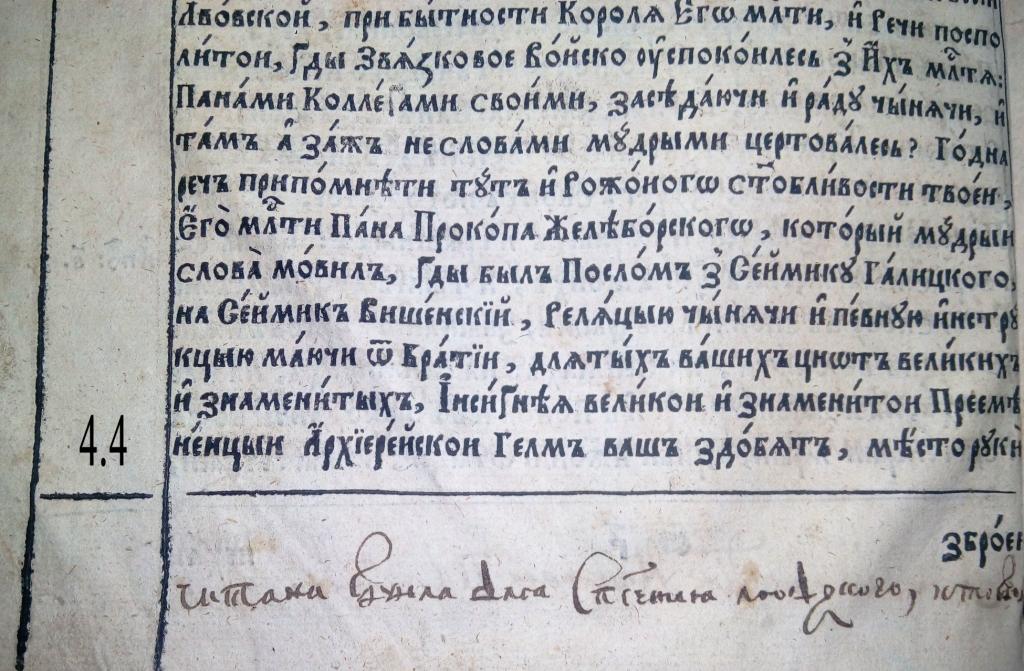 Лво́вской, при бы́тности Короля̀ Єгѡ̀ мл҃ти, и҆ Речи поспо
ли́той, ґды̀ Звѧ́зковое Во́йско ᲂу҆споко́илесь з̾ И҆́хъ мл҃тѧ:
Пана́ми Колле́ґами свои́ми, засѣда́ючи и҆ ра́ду чы́нячи, и҆
та́мъ а҆ за́жъ не слова́ми му́дрыми цертова́лесь? Го́дна
речъ припо́мнѣти ту́тъ и҆ Рожо́ногѡ ст҃обли́вости твое́й,
Є҆гò мл҃ти Па́на Проко́па Желѣбо́рскогѡ, кото́рый му́дрыи
слова̀ мо́вилъ, ґды былъ Посло́мъ з̾ Се́ймикꙋ Га́лицкого,
на Се́ймикъ Више́нскїй, Реля́цыю чы́нячи и҆ пе́вную и҆нстрꙋ
кцыю ма́ючи ѿ Бра́тїи, для ты́хъ ва́шихъ цнотъ вели́кихъ
и҆ знамени́тыхъ, І҆нси́ґнѣѧ вели́кои и҆ знамени́тои Преемѣ
не́нцыи А҆рхїере́йскои Гелмъ вашъ здо́бятъ, мѣ́сто рꙋки
4.4
збро́ен